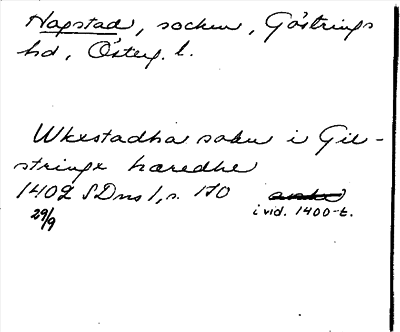 Hagstad, socken, Göstrings
hd, Österg. l.
Wkestadha sokn i Gil-
stringx haredhe
1402 SDns 1, s. 170
29/9
i vid. 1400-t.